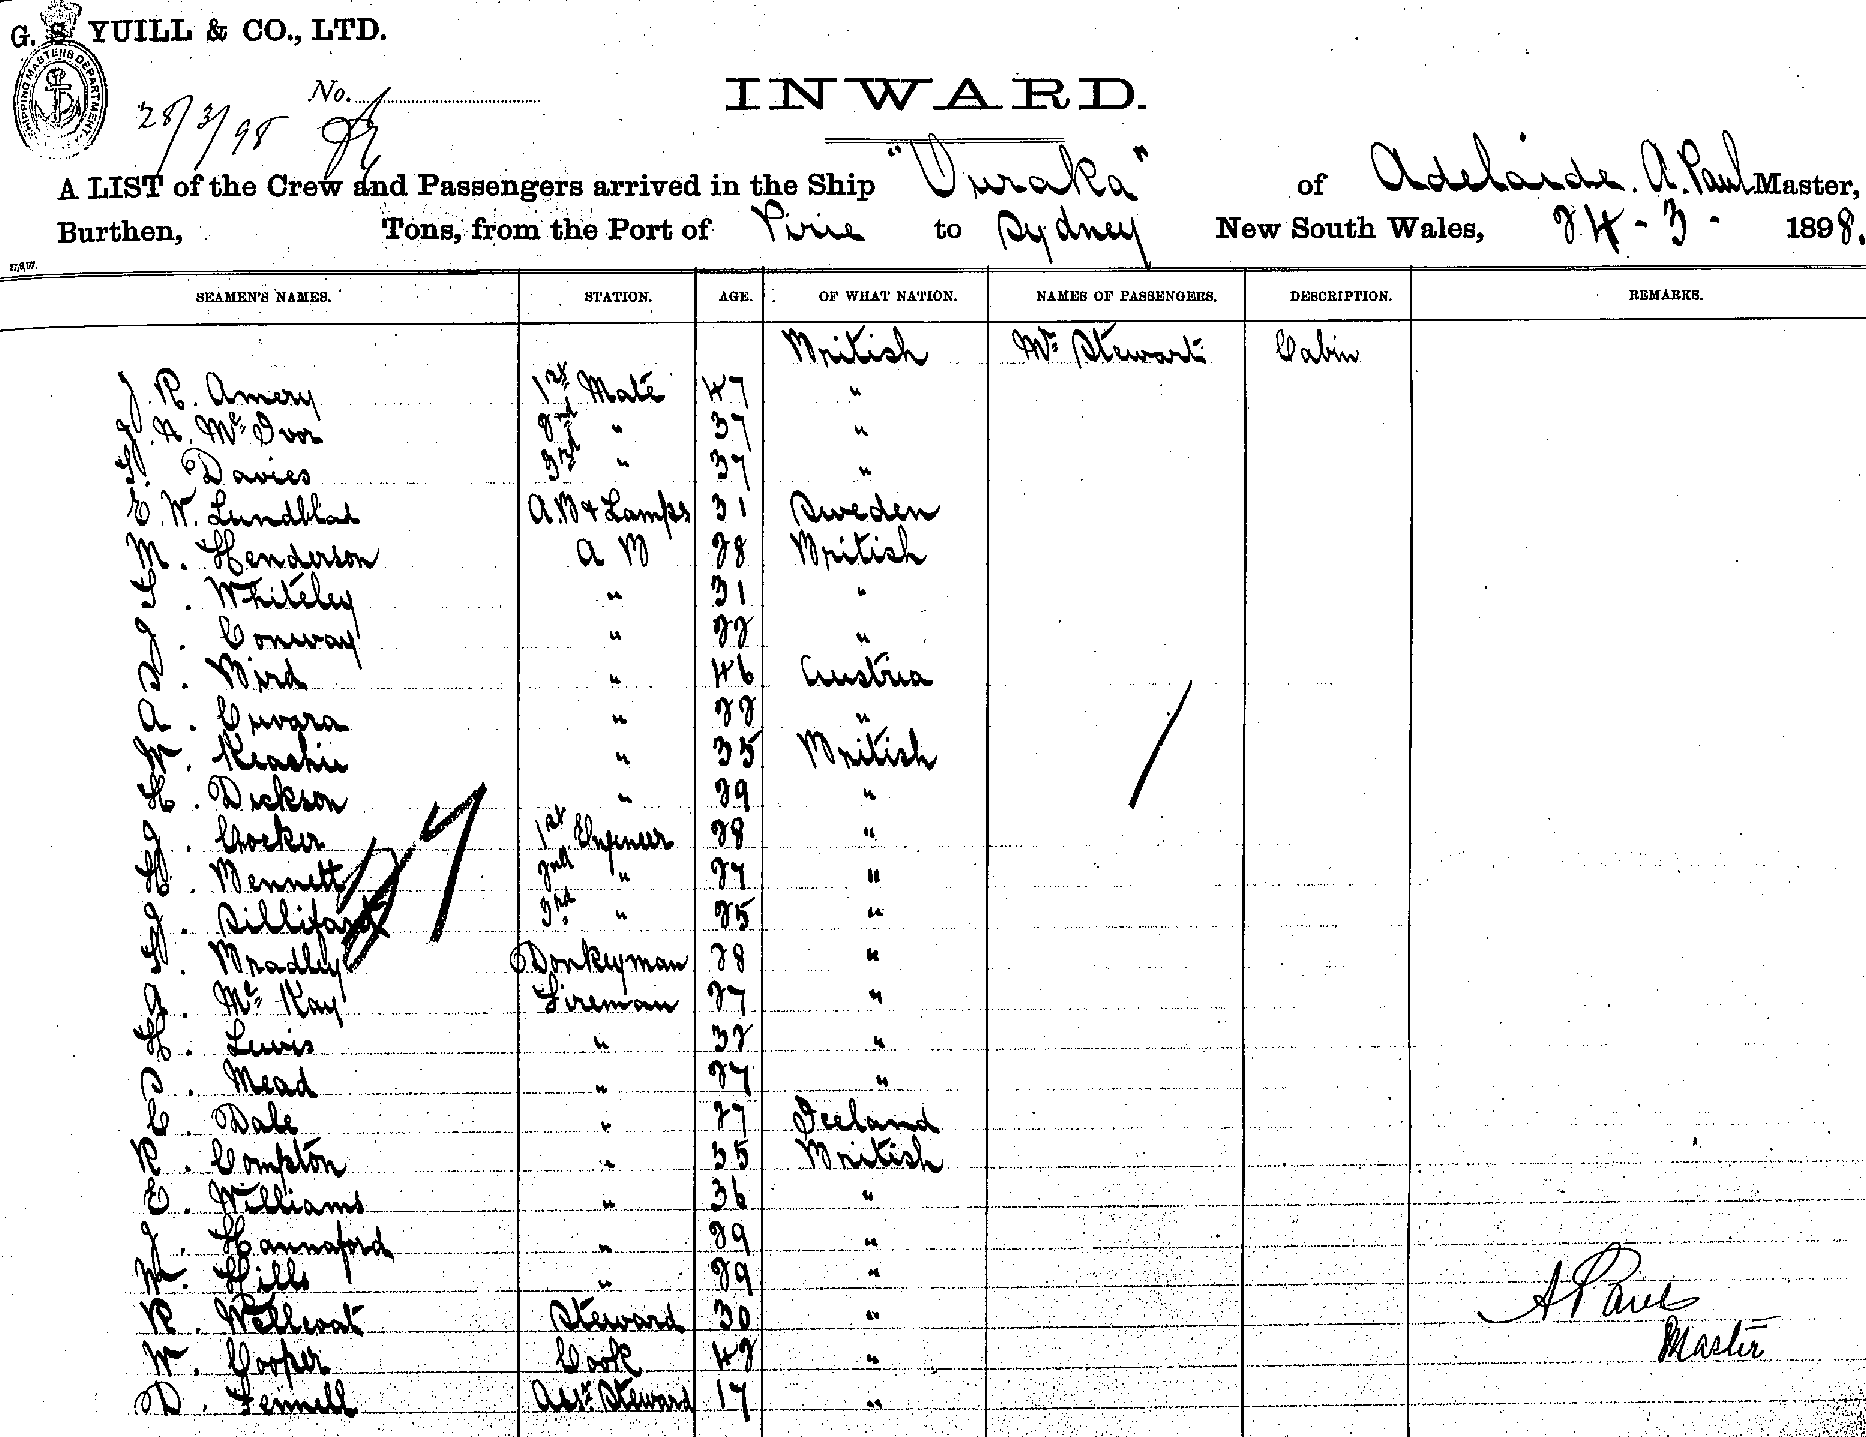 G. S. YUILL & CO., LTD.
SHIPPING MASTERS DEPARTMENT
No.
28/3/98
INWARD.
A LIST of the Crew and Passengers arrived in the Ship "Ouraka" of Adelaide. A. Paul Master,
Burthen, Tons, from the Port of Pirie to Sydney New South Wales, 24-3-1898.
SEAMEN'S NAMES. STATION. AGE. OF WHAT NATION. NAMES OF PASSENGERS. DESCRIPTION. REMARKS.
British Mr Stewart Cabin
J. R. Amery 1st Mate 47 "
J. A. McIvor 2nd " 37 "
Davies 3rd " 37 "
E. W. Lundblad A.B & Lamps 31 Sweden
M. Henderson A B 28 British
Whiteley " 31 "
J. Conway " 22 "
Bird " 46 Austria
A. Cuvara " 22 "
W. Keashie " 35 British
H. Dickson " 29 "
J. Cocker 1st Engineer 28 "
H. Bennett 2nd " 27 "
J. Sillifant 3rd " 25 "
Bradley Donkeyman 28 "
McKay Fireman 27 "
H. Lewis " 32 "
Mead " 27 "
C. Dale " 27 Iceland
R. Compton " 35 British
E. Williams " 36 "
J. Hannaford " 29 "
W. Hills " 29 "
R. Wellcoat Steward 30 "
W. Cooper Cook 42 "
D. Fennell Asst. Steward 17 "
27
A Paul
Master